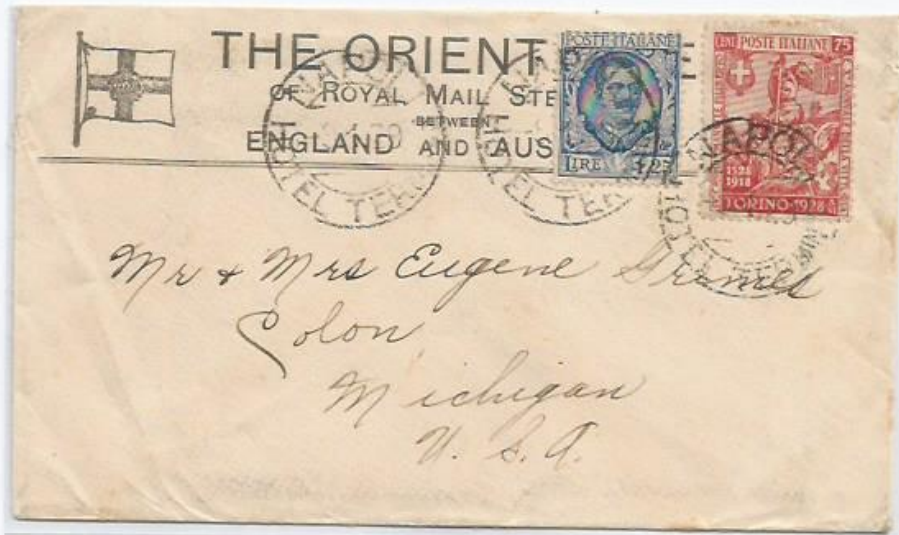 THE ORIENT
OF ROYAL MAIL STE
BETWEEN
ENGLAND AND AUS
POSTE ITALIANE
LIRE 1,25
CENT POSTE ITALIANE 75
1528
1918
TORINO-1928
NAPOLI
HOTEL TER
NAPO
HOTEL TER
NAPOLI
HOTEL TER
Mr & Mrs Eugene Grimes
Colon
Michigan
U. S. A.